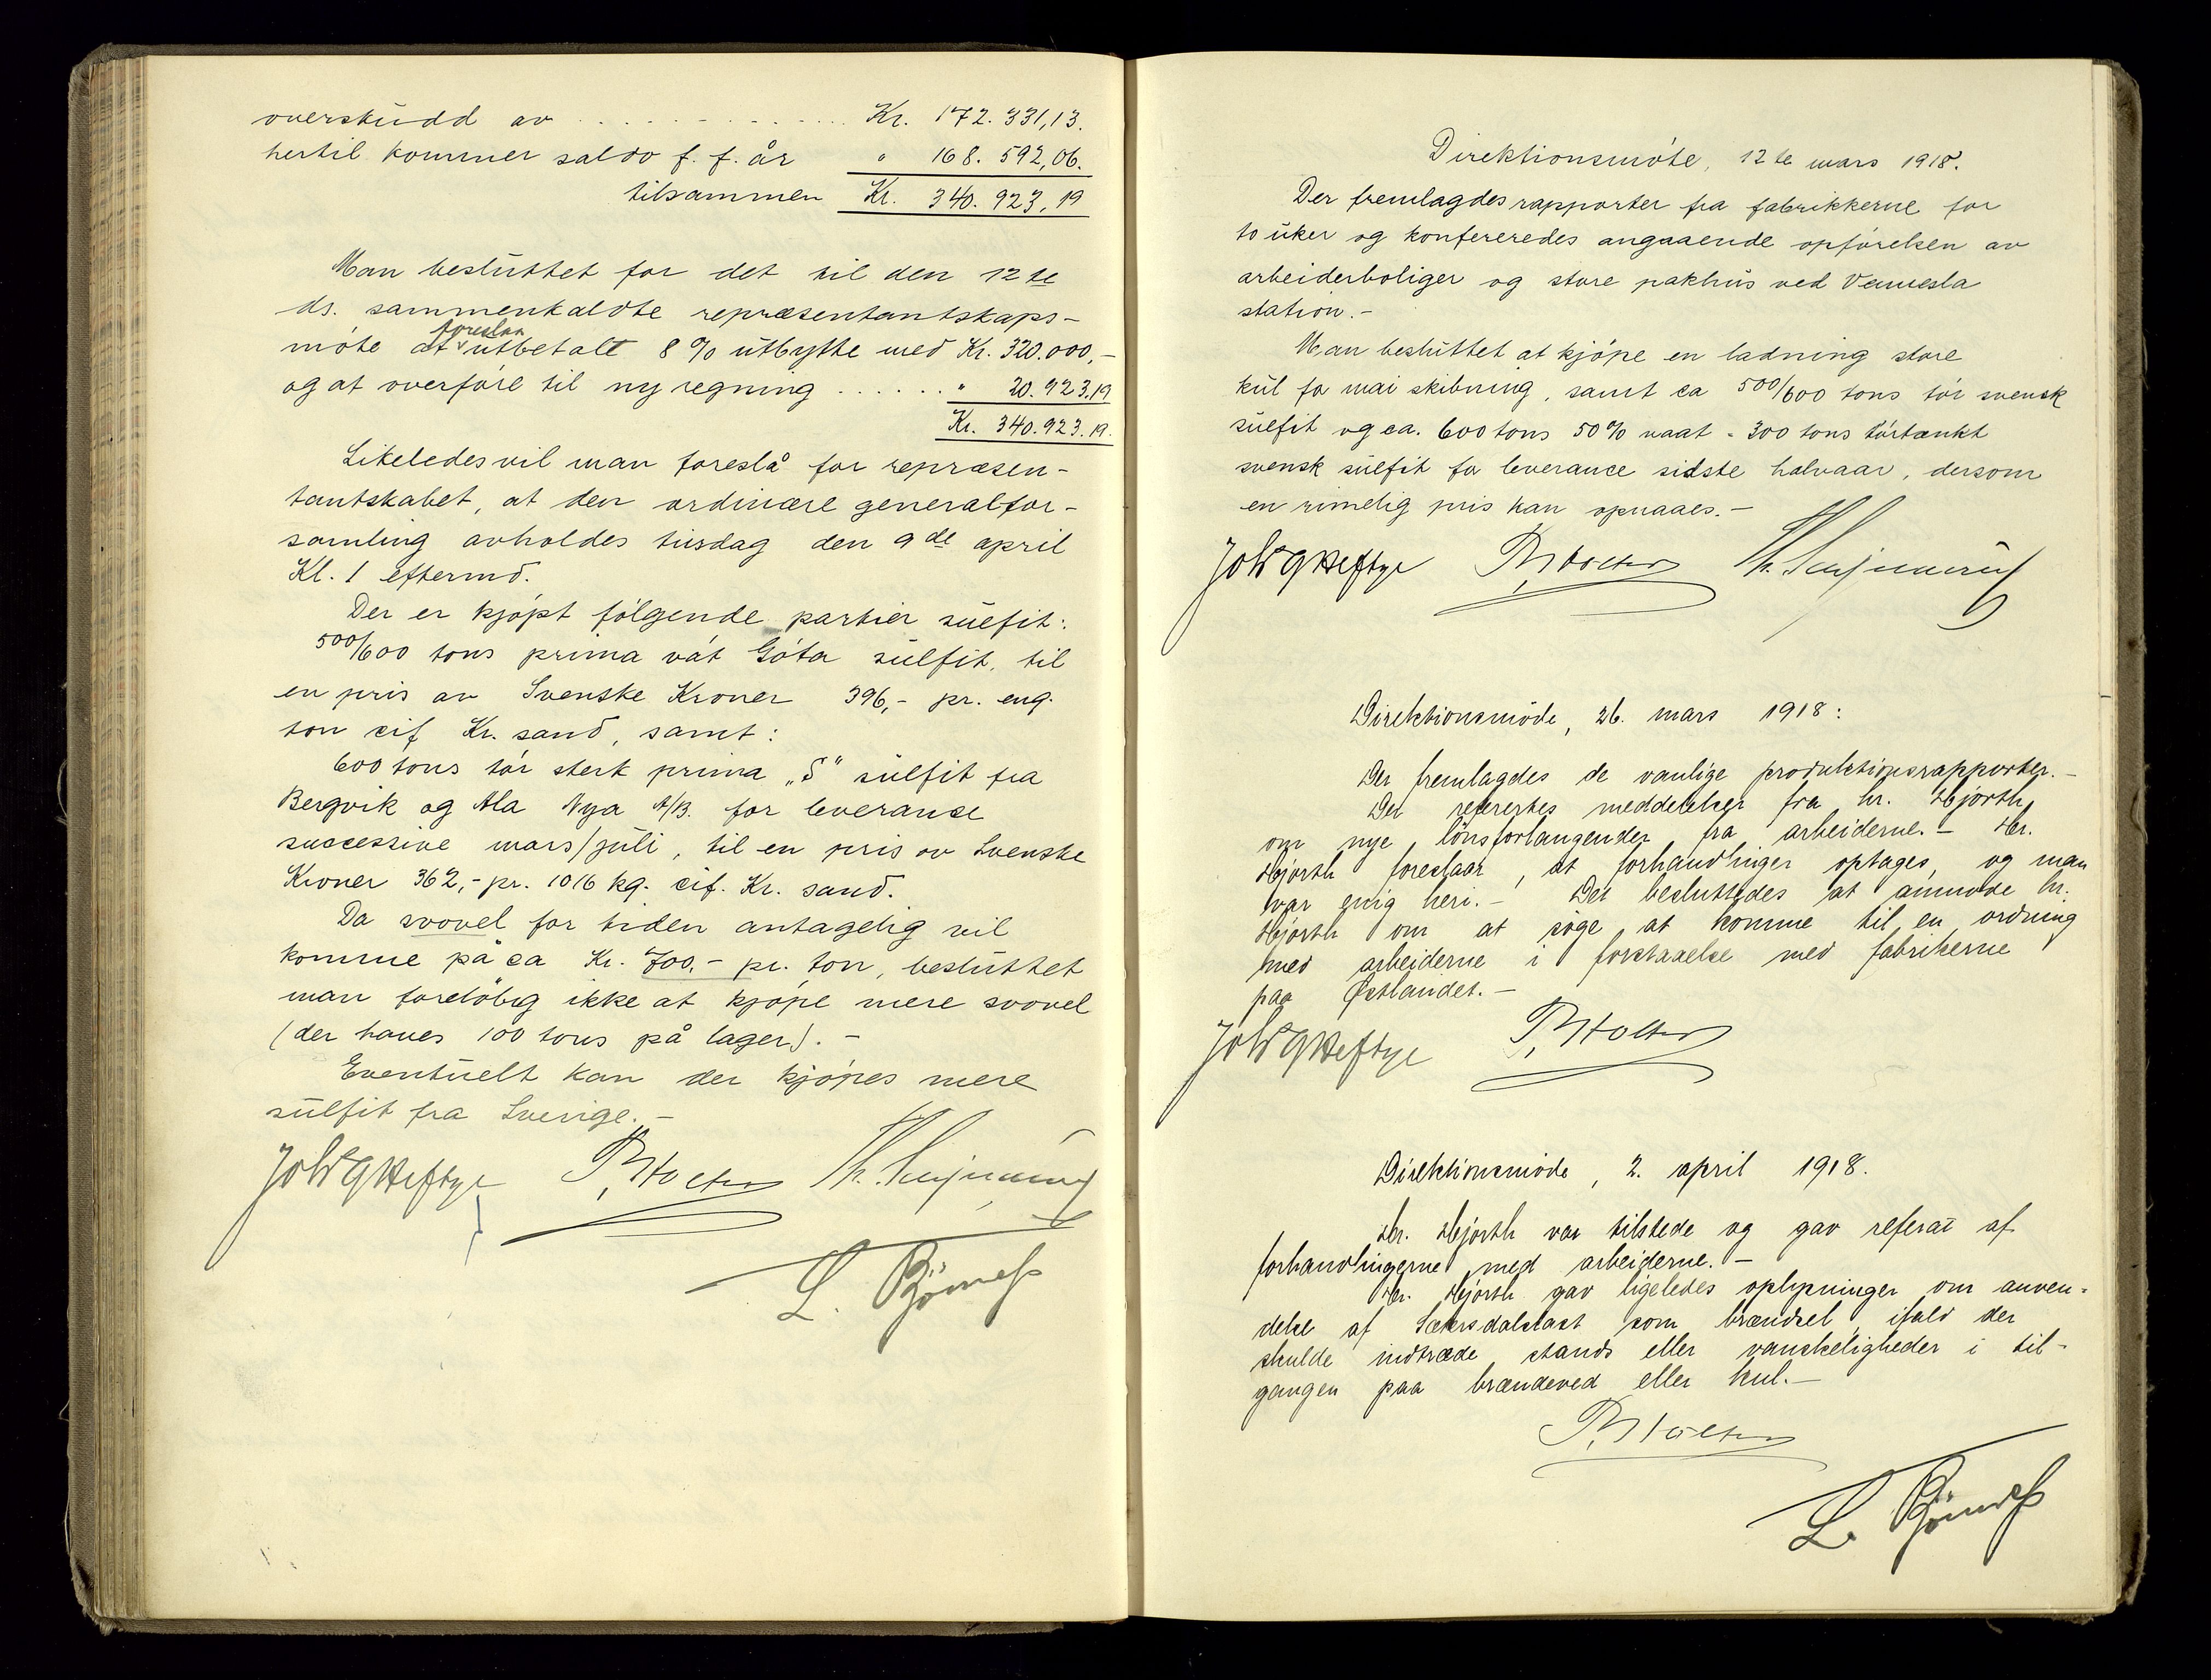 overskudd av . . . . . . . . . . . . Kr. 172.331,13.
hertil kommer saldo f. f. år " 168.592,06.
tilsammen Kr. 340.923,19
Man besluttet for det til den 12te
ds. sammenkaldte repræsentantskaps-
foreslaa
møte at utbetalt 8 % utbytte med Kr. 320.000,-
og at overføre til ny regning . . . . . . " 20.923.19
Kr. 340.923.19.
Likeledes vil man foreslå for repræsen-
tantskabet, at den ordinære generalfor-
samling avholdes tirsdag den 9de april
Kl. 1 eftermd.
Der er kjøpt følgende partier sulfit:
500/600 tons prima våt Göta sulfit, til
en pris av Svenske Kroner 396,- pr. eng.
ton cif Kr. sand, samt:
600 tons tør sterk prima „S" sulfit fra
Bergvik og Ala Nya A/B. for leveranse
successive mars/juli, til en pris av Svenske
Kroner 362,- pr. 1016 kg. cif. Kr. sand.
Da svovel for tiden antagelig vil
komme på ca Kr. 700,- pr. ton, besluttet
man foreløbig ikke at kjøpe mere svovel
(der haves 100 tons på lager). -
Eventuelt kan der kjøpes mere
sulfit fra Sverige. -
Joh G Heftye P. Holter
Direktionsmøte, 12te mars 1918.
Der fremlagdes rapporter fra fabrikkerne for
to uker og konfereredes angaaende opførelsen av
arbeiderboliger og store pakhus ved Vennesla
station. -
Man besluttet at kjøpe en ladning store
kul for mai skibning, samt ca 500/600 tons tør svensk
sulfit og ca. 600 tons 50 % vaat = 300 tons tørtænkt
svensk sulfit for leverance sidste halvaar, dersom
en rimelig pris kan opnaaes. -
Joh G Heftye P. Holter
Direktionsmøde, 26. mars 1918:
Der fremlagdes de vanlige produktionsrapporter. -
Det referertes meddelelser fra hr. Hjorth
om nye lönsforlangender fra arbeiderne. - Hr.
Hjorth foreslaar, at forhandlinger optages, og man
var enig heri. - Det besluttedes at anmode hr.
Hjorth om at søge at komme til en ordning
med arbeiderne i forstaaelse med fabrikerne
paa Østlandet. -
Joh G Heftye P. Holter
Direktionsmöde, 2. april 1918.
Hr. Hjorth var tilstede og gav referat af
forhandlingerne med arbeiderne. -
Hr. Hjorth gav ligeledes oplysninger om anven-
delse af Sætersdalslast som brændsel, ifald der
skulde indtræde stands eller vanskeligheder i til-
gangen paa brændeved eller kul. -
P. Holter